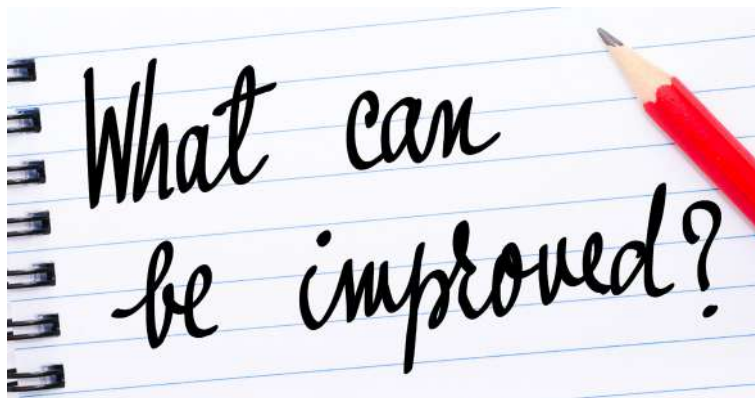 What can
be improved?